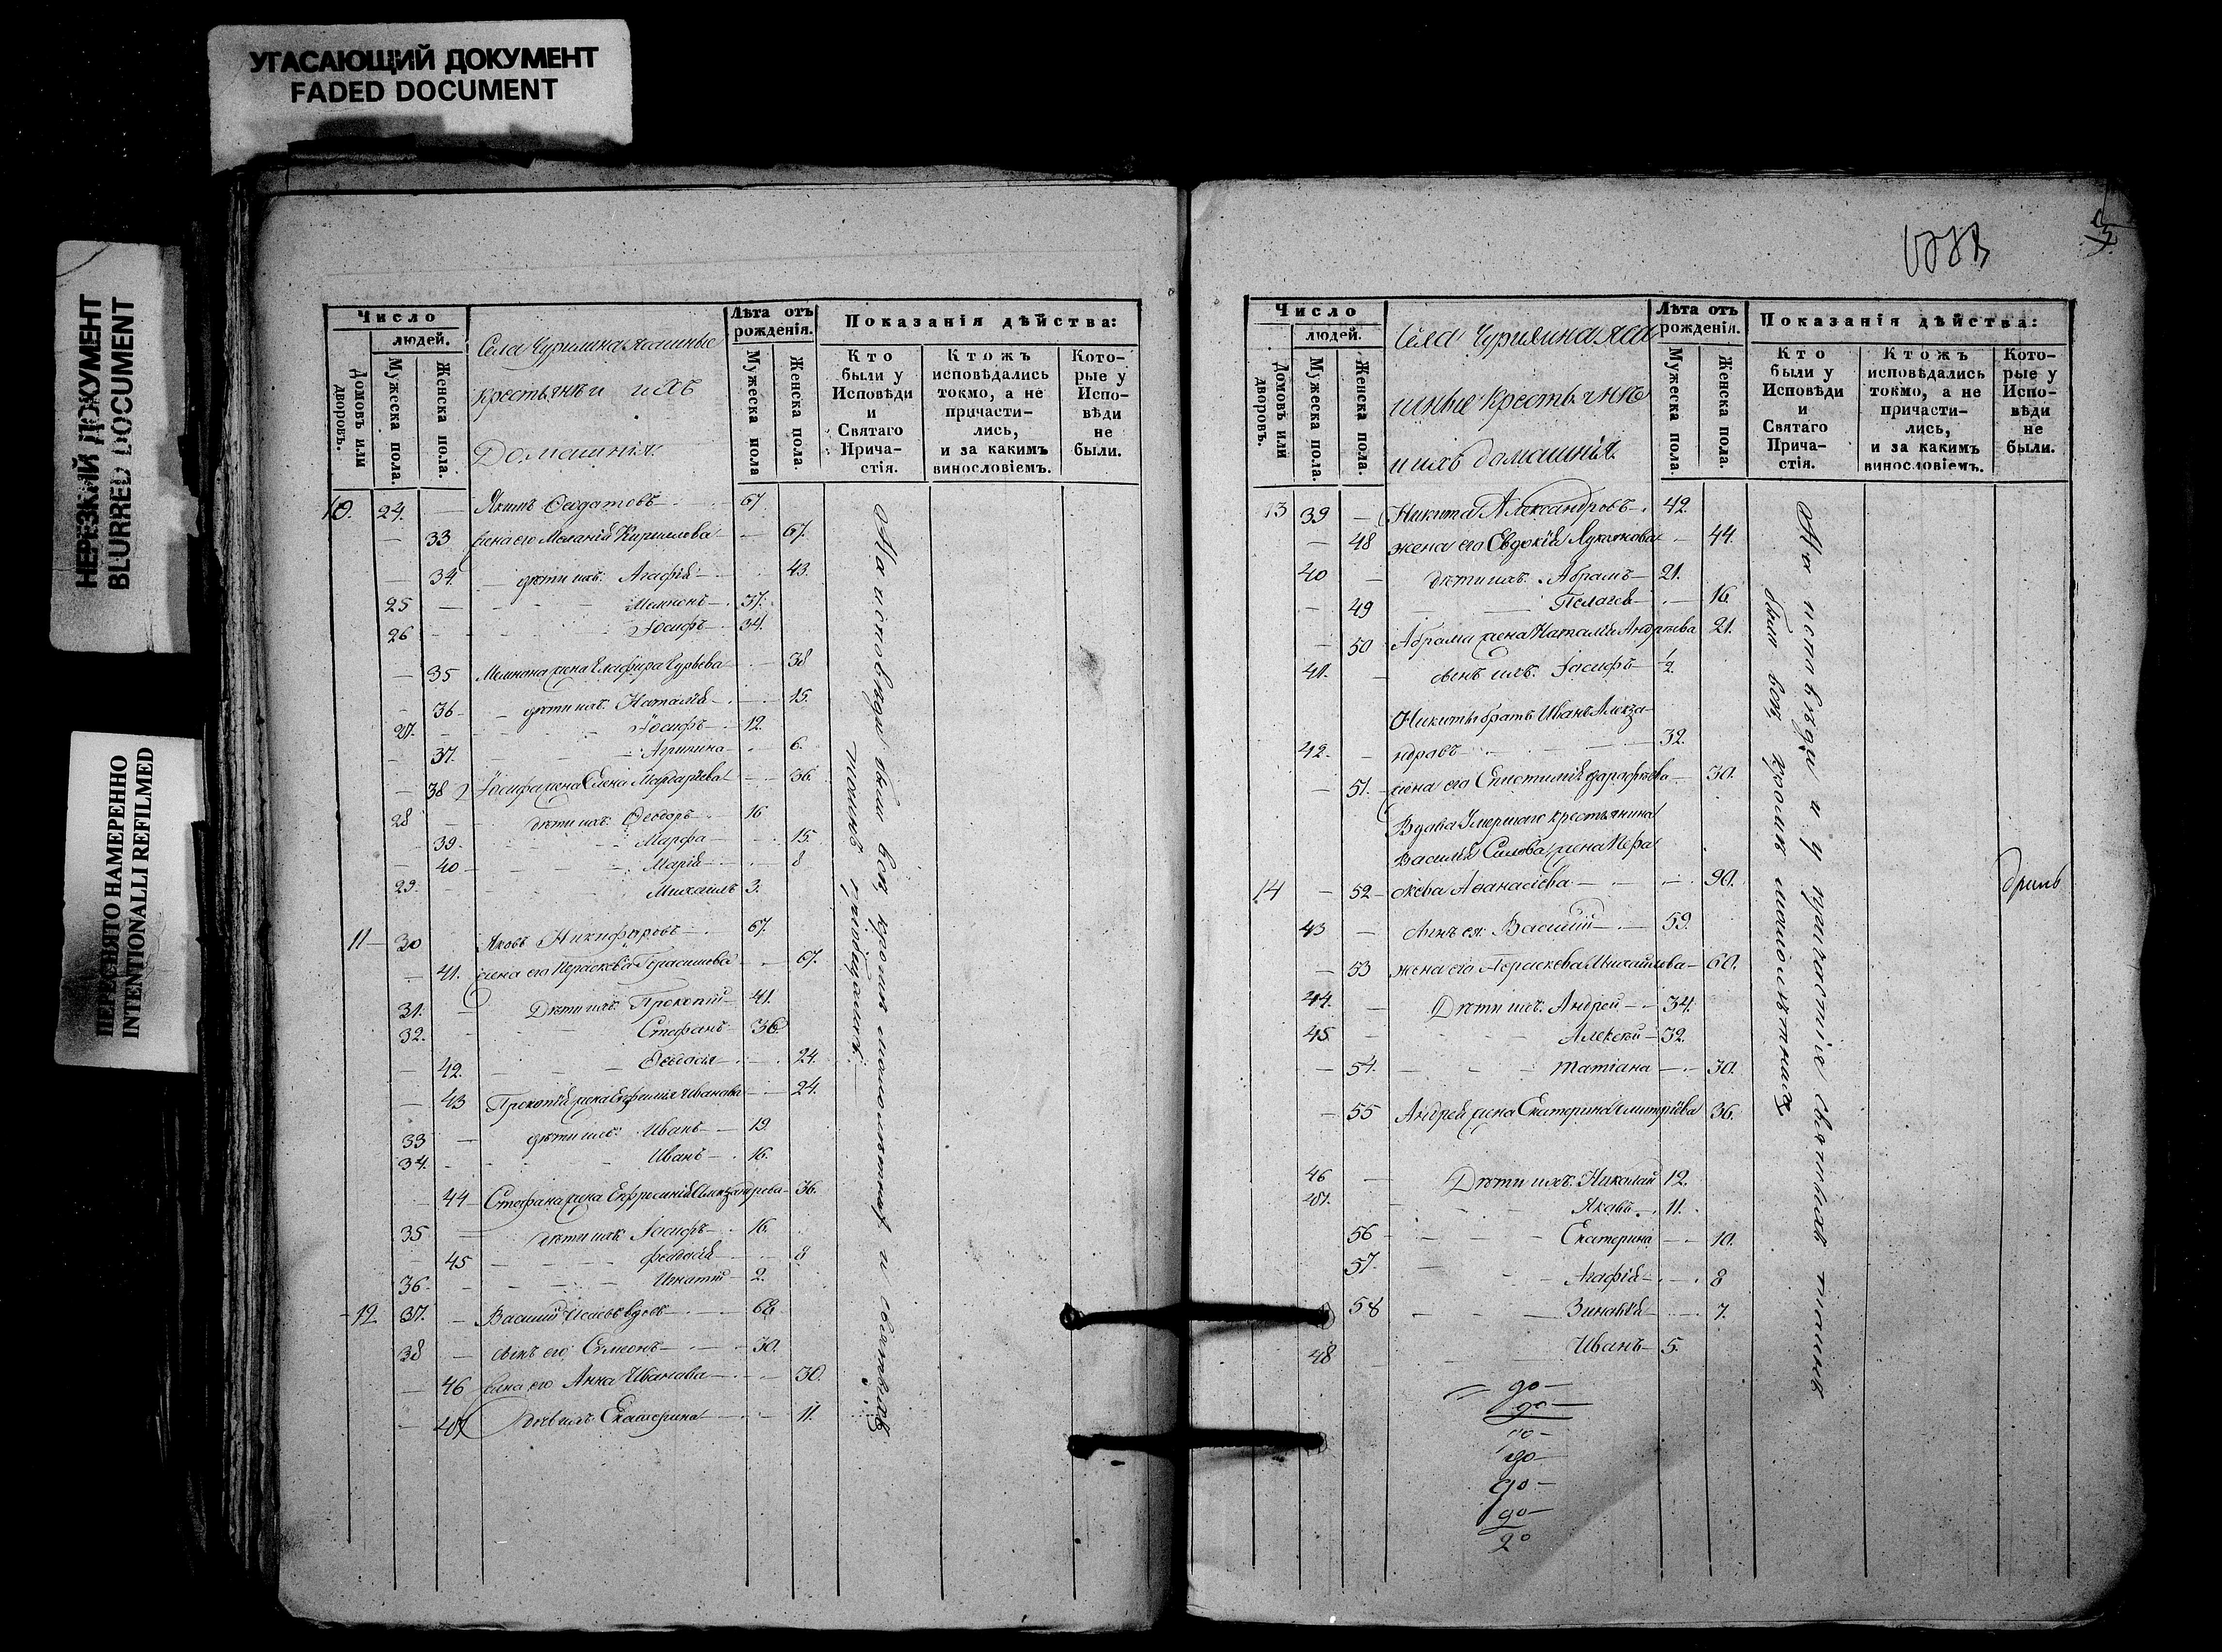 УГАСАЮЩИЙ ДОКУМЕНТ
FADED DOCUMENT
НЕРЕЗКИЙ ДОКУМЕНТ
BLURRED DOCUMENT
ПЕРЕСНЯТО НАМЕРЕННО
INTENTIONALLI REFILMED
Число
людей.
Домовъ или дворовъ.
Мужеска пола.
Женска пола.
Села Чурилина ясашные
крестьянъи ихъ
Домашнія.
Лѣта отъ рожденія.
Мужеска пола
Женска пола.
Показанія дѣйства:
Кто были у Исповѣди и Святаго Прича-стія.
Ктожъ исповѣдались токмо, а не причасти-лись, и за какимъ винословіемъ.
Кото-рые у Испо-вѣди не были.
10. 24. — Якимъ — 67
— 33 жена его Меланія Кириллова — 67.
— 34. — дѣти ихъ: Агафія — 43.
25 — Мемнонъ — 37.
26 — Іосифъ — 34.
— 35 Мемнона жена Глафира Гурьева — 38
— 36 — дѣти ихъ: Наталія — 15.
27. — Іосифъ — 12.
— 37. — Агрипина — 6.
— 38 Іосифа жена Елена — 36
28 — дѣти ихъ: Ѳеодоръ — 16
— 39 — Марфа — 15.
— 40 — Марія — 8
29. — Михаилъ 3.
11 — 30 Яковъ Никифоровъ — 67.
— 41. жена его Параскева Герасимова — 67.
31. — Дѣти ихъ: Прокопій — 41.
32. — Стефанъ — 36.
— 42. — Ѳеодосія — 24.
— 43 Прокопія жена Евфимія Иванова — 24.
33 — дѣти ихъ: Иванъ — 19
34. — Иванъ — 16.
— 44 — Стефана жена Евфросинія — 36.
35 — дѣти ихъ: Іосифъ — 16.
— 45 — — 8
36. — Игнатій — 2.
12 37. — Василій Исаевъ вдовъ — 68
38 — сынъ его Симеонъ — 30.
— 46 жена его Анна Иванова — 30.
— 47 дочь ихъ Екатерина — 11.
На исповѣди были всѣ кромѣ малолѣтныхъ и святыхъ
тайнъ
Число
людей.
Домовъ или дворовъ.
Мужеска пола.
Женска пола.
Села Чурилина яса
шные крестьянъ
и ихъ домашнія.
Лѣта отъ рожденія.
Мужеска пола.
Женска пола.
Показанія дѣйства:
Кто были у Исповѣди и Святаго Прича-стія.
Ктожъ исповѣдались токмо, а не причасти-лись, и за какимъ винословіемъ.
Кото-рые у Испо-вѣди не были.
13 39 — Никита Александровъ — 42
— 48 жена его Евдокія Лукьянова — 44.
40 — дѣти ихъ: Абрамъ — 21.
— 49 — Пелагея — 16.
— 50 Абрама жена Наталія Андреева 21.
41. — сынъ ихъ: Іосифъ — ½.
Никиты братъ Иванъ Алекса-
42. — ндровъ — 32.
— 51. жена его Епистимія — 30.
Вдова Умершаго крестьянина
Василія Силова жена Пара
14 — 52 — скева Аѳанасіева — 90.
43 — сынъ ея: Василій — 59.
— 53 жена его Параскева Михайлова — 60.
44. — Дѣти ихъ: Андрей — 34.
45 — Алексѣй — 32.
— 54. — Татіана — 30.
— 55 Андрея жена Екатерина Димитріева 36.
46 — Дѣти ихъ: Николай 12.
47. — Яковъ — 11.
56 — Екатерина — 10.
57. — Агафія — 8
58 — Зиновія — 7.
48 — Иванъ — 5.
На исповѣди и у причастіе святыхъ таинъ
были всѣ кромѣ малолѣтныхъ
90 —
90 —
90 —
90 —
90 —
20